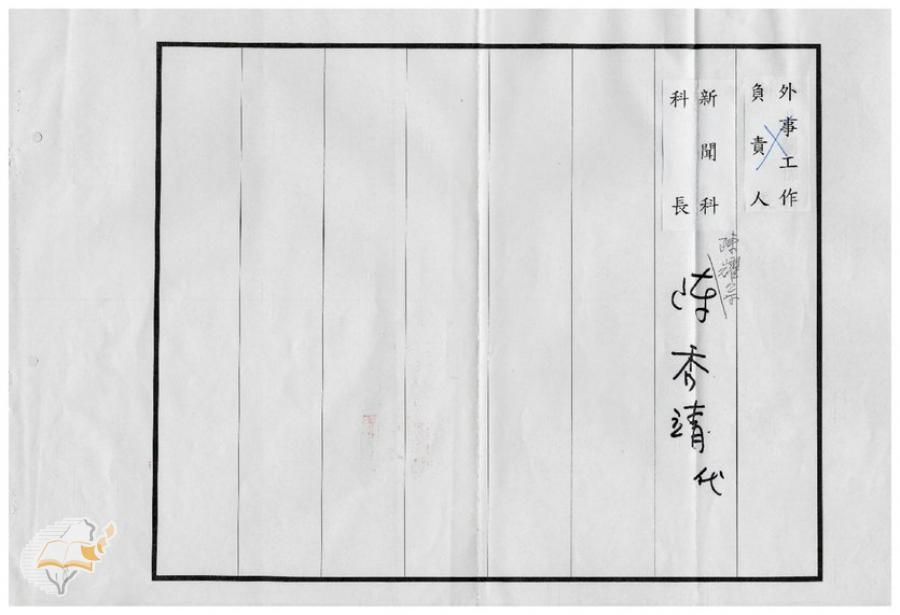 外事工作
負責人
新聞科
科長
陳耀宗
陳秀靖代